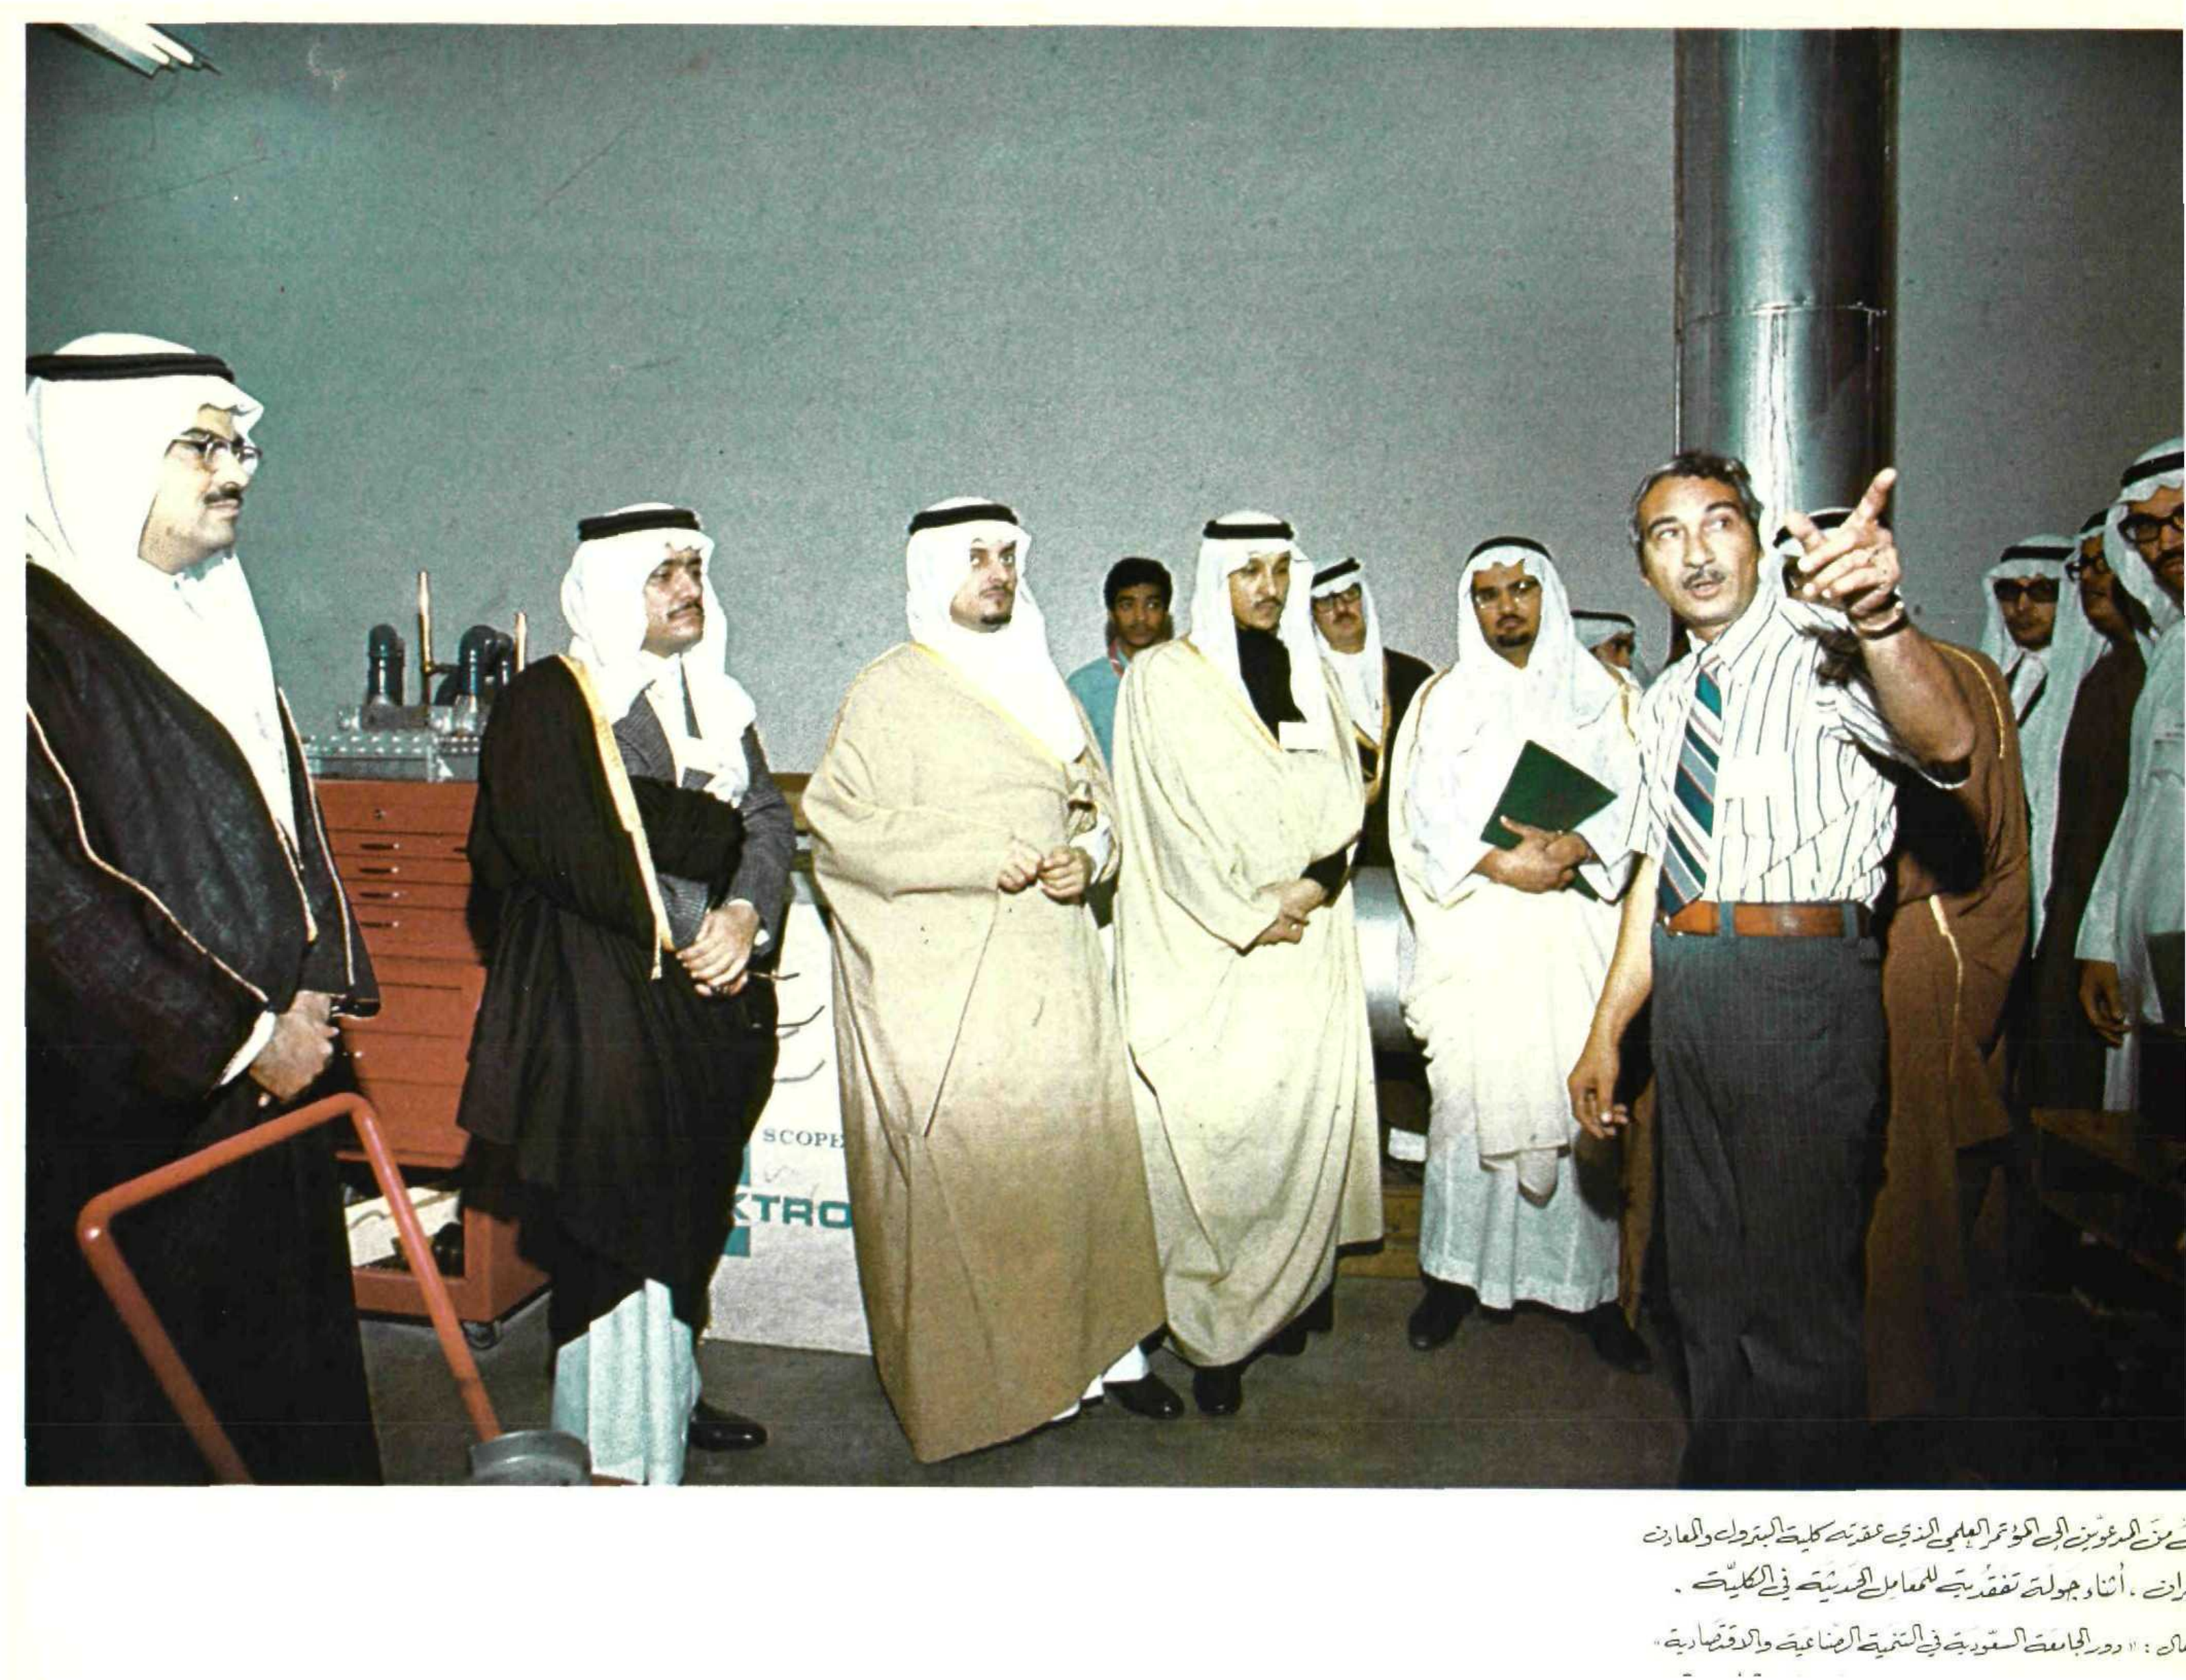 SCOPE
KTRO
من المدعوّين إلى المؤتمر العلمي الذي عقدته كلية البترول والمعادن
ران ، أثناء جولة تفقّدية للمعامل الحديثة في الكليّة .
ال : « دور الجامعة السعودية في التنمية الصناعية والاقتصادية »